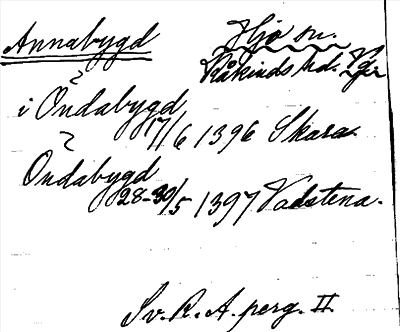 Annabygd
Hjo sn.
Kåkinds hd. Vgr
i Ondabygd
17/6 1396 Skara.
Ondabygd
28-30/5 1397 Vadstena.
Sv. R. A. perg. II.